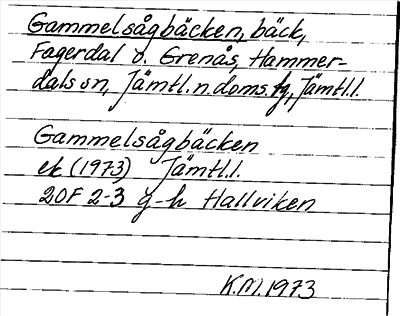 Gammelsågbäcken, bäck,
Fagerdal o. Grenås, Hammer-
dals sn, Jämtl. n. doms. tg, Jämtl. l.
Gammelsågbäcken
ek (1973) Jämtl. l.
20F 2-3 g-h Hallviken
K.M. 1973